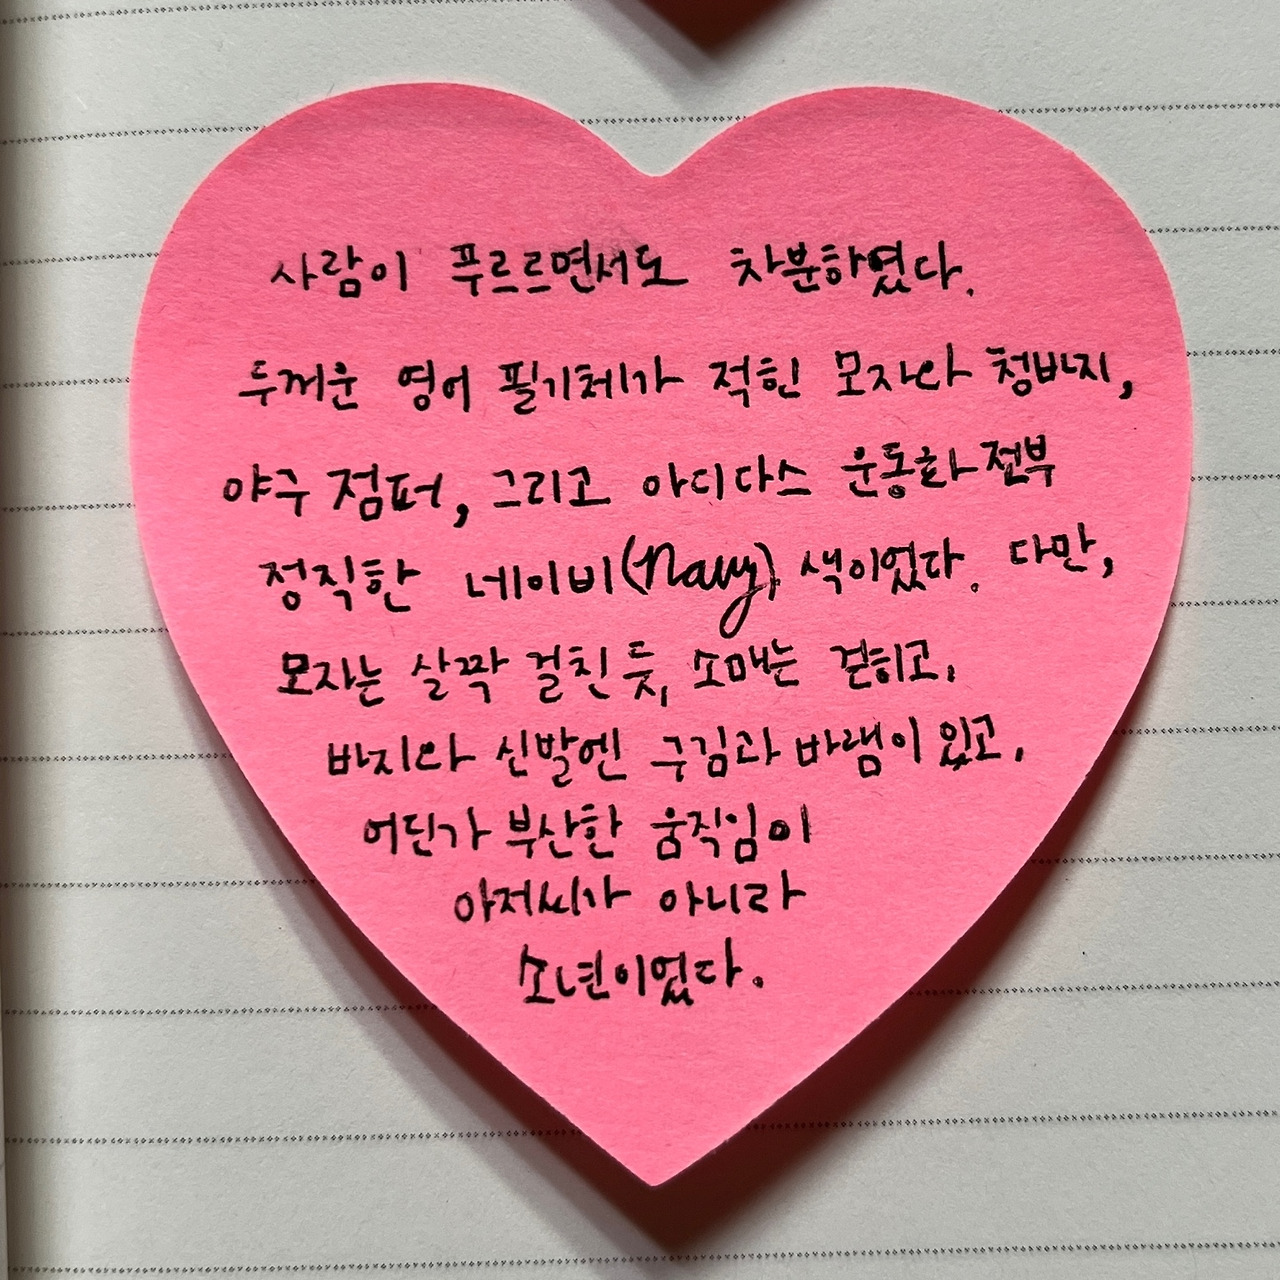 사람이 푸르르면서도 차분하였다.
두꺼운 영어 필기체가 적힌 모자와 청바지,
야구 점퍼, 그리고 아디다스 운동화 전부
정직한 네이비(navy) 색이었다. 다만,
모자는 살짝 걸친 듯, 소매는 걷히고,
바지와 신발엔 구김과 바램이 있고,
어딘가 부산한 움직임이
아저씨가 아니라
소년이었다.